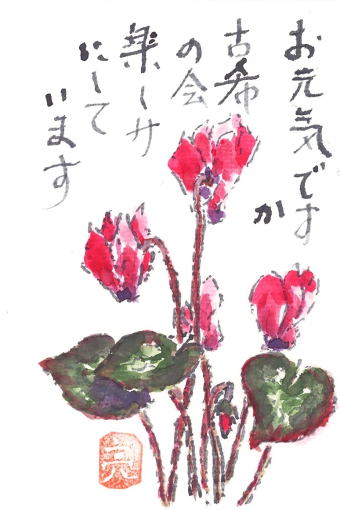 お元気です
か
古希
の会
楽しみ
にして
います